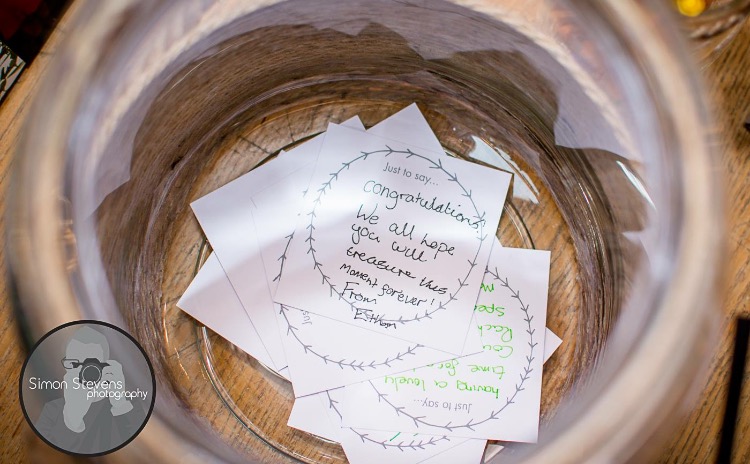 Just to say...
Congratulations!
We all hope
you will
treasure this
moment forever!
From
Just
Just to say...
having a lovely
time
Simon Stevens
photography